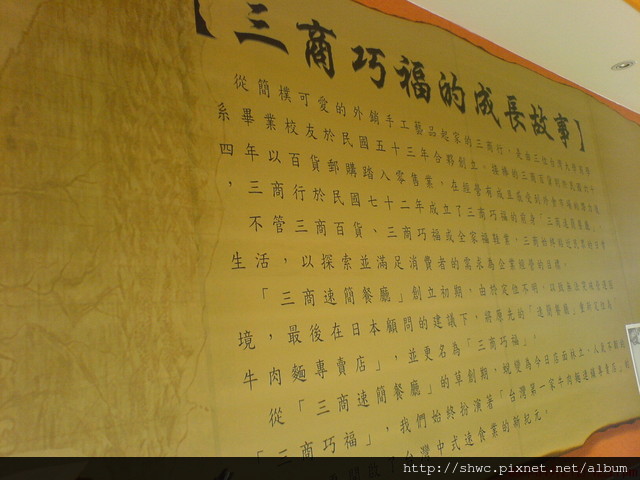 【三商巧福的成長故事】
從簡樸可愛的外銷手工藝品起家的三商行，是由三位台灣大學商學
系畢業校友於民國五十三年合夥創立，接棒的三商百貨則於民國六十
四年以百貨郵購踏入零售業，在經營有成
，三商行於民國七十二年成立了三商巧福的前身「三商速簡餐廳」
不管三商百貨、三商巧福或全家福鞋業，三商始終
生活，以探索並滿足消費者的需求為企業經營的目標。
「三商速簡餐廳」創立初期，由於定位不明，以致無法突破
境，最後在日本顧問的建議下，將原先的「速簡餐廳」重新定位為
牛肉麵專賣店」，並更名為「三商巧福」。
從「三商速簡餐廳」的草創期，蛻變為今日店面林立、人氣不
「三商巧福」，我們始終扮演著「台灣第一家牛肉麵連鎖專賣店」的
台灣中式速食業的新紀元。
http://shwc.pixnet.net/album